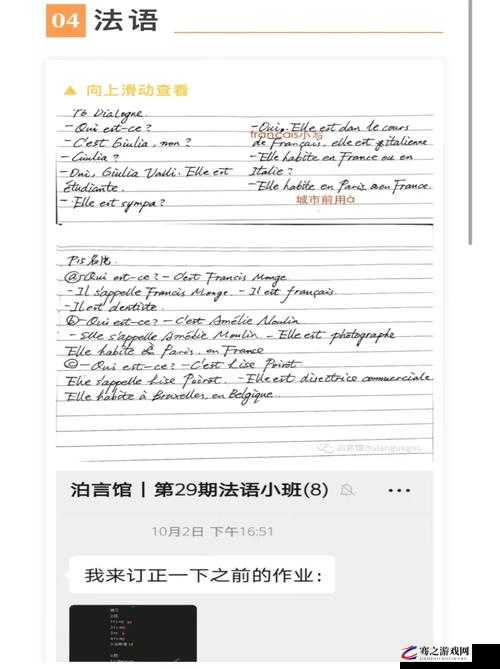 04 法语
向上滑动查看
T6 Dialogue.
- Qui est-ce ?
- C'est Giulia, non ?
- Giulia ?
- Oui, Giulia Valli. Elle est
étudiante.
- Elle est sympa ?
- Oui. Elle est dan le cours
français小写
de Français, elle est italienne
- Elle habite en France ou en
Italie ?
- Elle habite en Paris, en France.
城市前用à
P15
ⓐ Qui est-ce ? - C'est Francis Monge
- Il s'appelle Francis Monge. - Il est français.
- Il est dentiste.
ⓑ - Qui est-ce ? - C'est Amélie Moulin
- Elle s'appelle Amélie Moulin - Elle est photographe
Elle habite à Paris, en France
ⓒ - Qui est-ce ? - C'est Lise Poirot
Elle s'appelle Lise Poirot. - Elle est directrice commerciale
Elle habite à Bruxelles, en Belgique.
泊言馆 | 第29期法语小班(8)
10月2日 下午16:51
我来订正一下之前的作业：
骞之游戏网